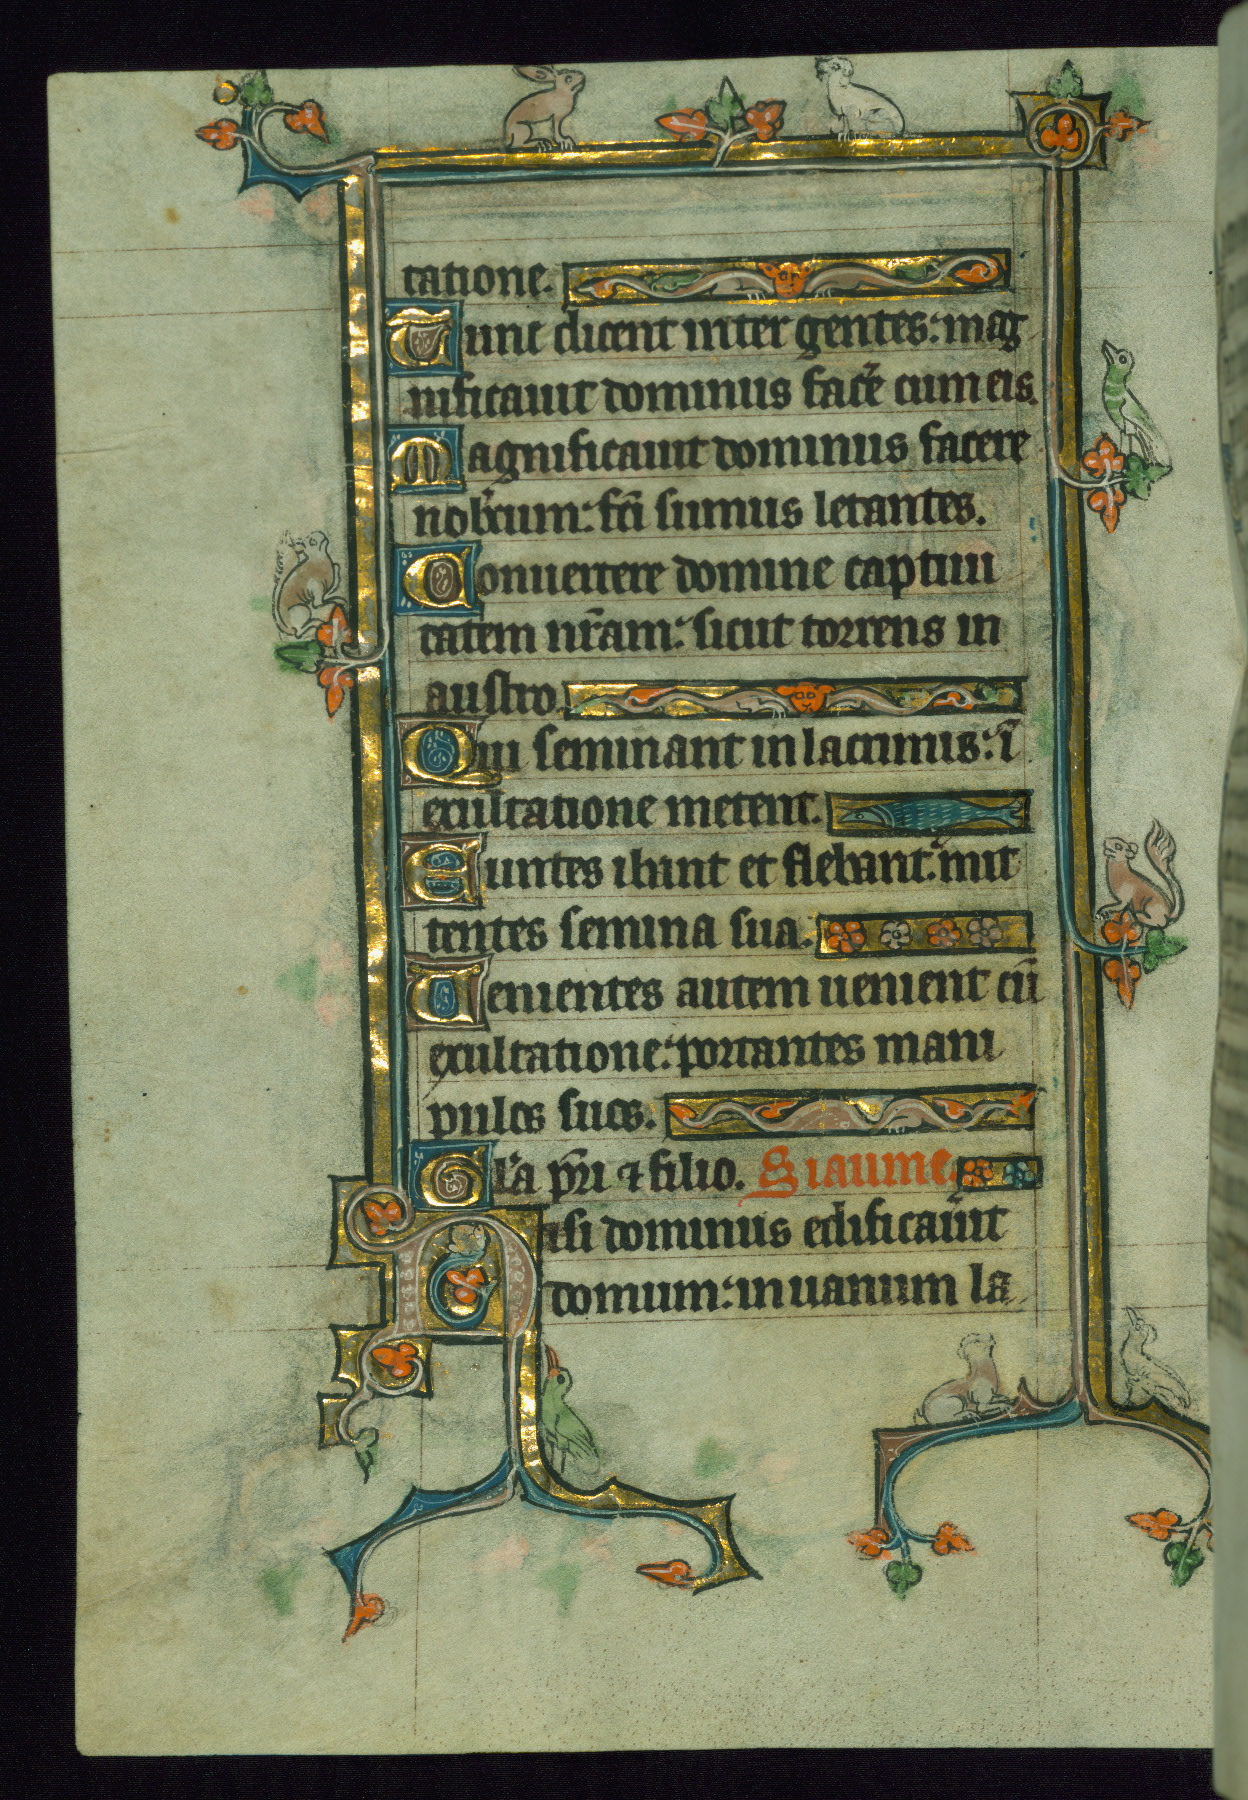 tatione.
Tunc dicent inter gentes: mag
nificauit dominus facͤre cum eis.
Magnificauit dominus facere
nobͥcum: fc̄i sumus letantes.
Conuertere domine captiui
tatem nr̄am: sicut torrens in
austro.
Qui seminant in lacrimis: ī
exultatione metent.
Euntes ibant et flebant: mit
tentes semina sua.
Uenientes autem uenient cū
exultatione: portantes mani
pulos suos.
Gl'a pr̄i ⁊ filio. Siaume.
Nisi dominus edificau̾it
domum: in uanum la